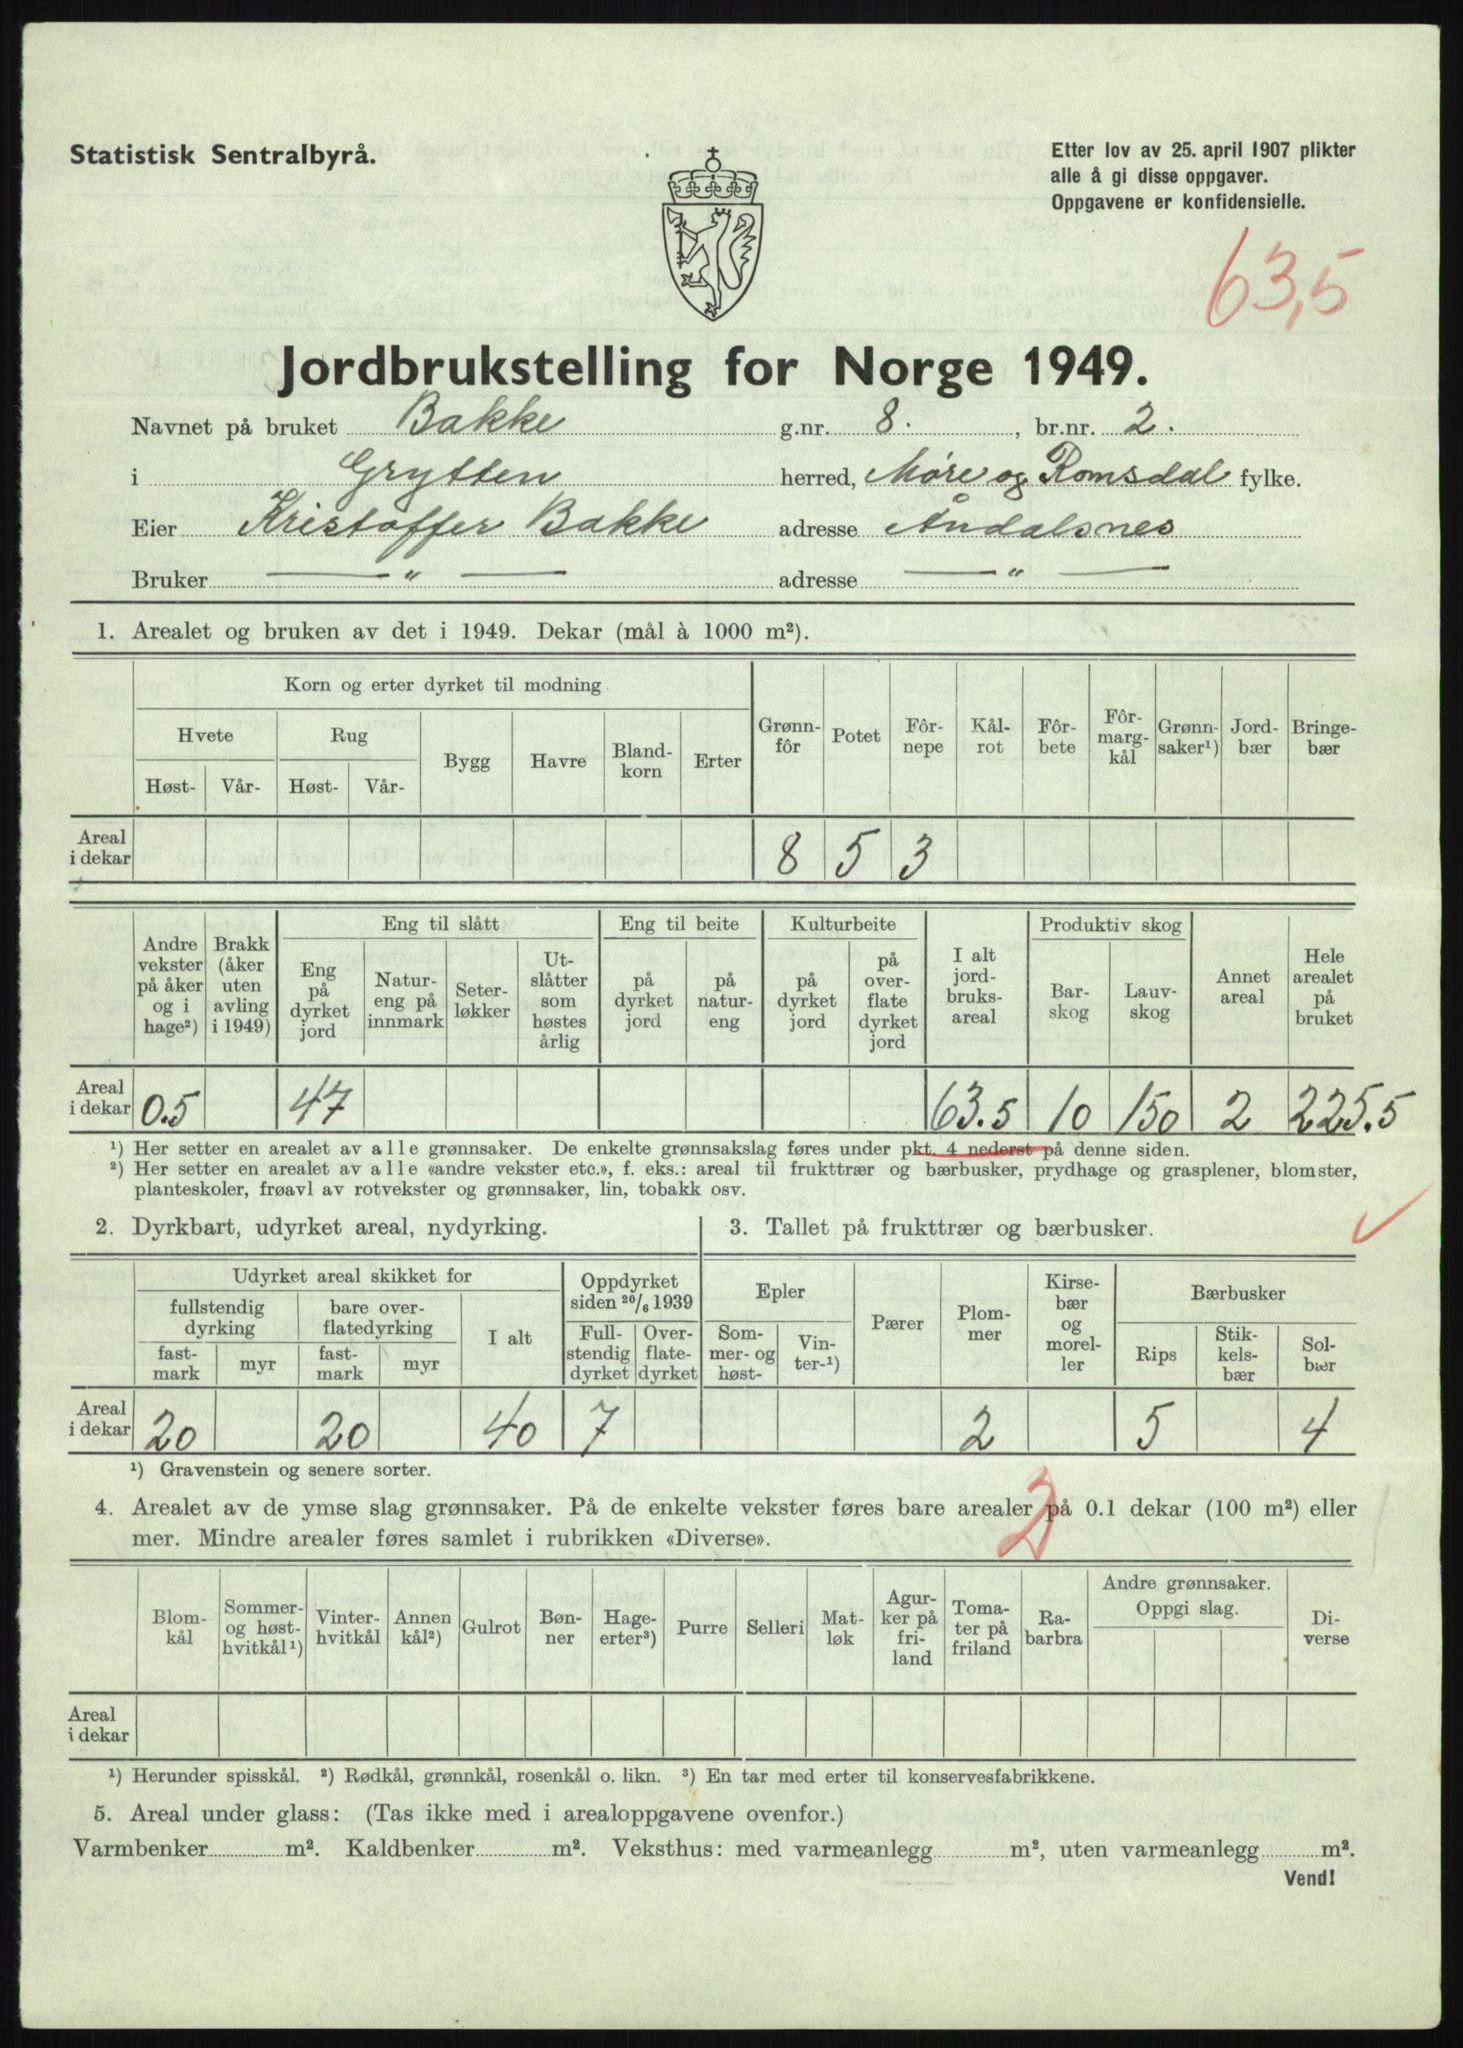 Statistisk Sentralbyrå.
Etter lov av 25. april 1907 plikter
alle å gi disse oppgaver.
Oppgavene er konfidensielle.
63,5
Jordbrukstelling for Norge 1949.
Navnet på bruket Bakke g.nr. 8. , br.nr. 2.
i Grytten herred, Møre og Romsdal fylke.
Eier Kristoffer Bakke adresse Åndalsnes
Bruker — „ — adresse — „ —
1. Arealet og bruken av det i 1949. Dekar (mål à 1000 m²).
Korn og erter dyrket til modning
Hvete
Høst-
Vår-
Rug
Høst-
Vår-
Bygg
Havre
Bland-
korn
Erter
Grønn-
fôr
Potet
Fôr-
nepe
Kål-
rot
Fôr-
bete
Fôr-
marg-
kål
Grønn-
saker¹)
Jord-
bær
Bringe-
bær
Areal
i dekar
8 5 3
Andre
vekster
på åker
og i
hage²)
Brakk
(åker
uten
avling
i 1949)
Eng til slått
Eng
på
dyrket
jord
Natur-
eng på
innmark
Seter-
løkker
Ut-
slåtter
som
høstes
årlig
Eng til beite
på
dyrket
jord
på
natur-
eng
Kulturbeite
på
dyrket
jord
på
over-
flate
dyrket
jord
I alt
jord-
bruks-
areal
Produktiv skog
Bar-
skog
Lauv-
skog
Annet
areal
Hele
arealet
på
bruket
Areal
i dekar
0.5 47 63.5 10 150 2 225.5
¹) Her setter en arealet av alle grønnsaker. De enkelte grønnsakslag føres under pkt. 4 nederst på denne siden.
²) Her setter en arealet av alle «andre vekster etc.», f. eks.: areal til frukttrær og bærbusker, prydhage og grasplener, blomster,
planteskoler, frøavl av rotvekster og grønnsaker, lin, tobakk osv.
2. Dyrkbart, udyrket areal, nydyrking.
Udyrket areal skikket for
fullstendig
dyrking
fast-
mark
myr
bare over-
flatedyrking
fast-
mark
myr
I alt
Oppdyrket
siden 20/6 1939
Full-
stendig
dyrket
Over-
flate-
dyrket
3. Tallet på frukttrær og bærbusker.
Epler
Som-
mer- og
høst-
Vin-
ter-¹)
Pærer
Plom-
mer
Kirse-
bær
og
morel-
ler
Bærbusker
Rips
Stik-
kels-
bær
Sol-
bær
Areal
i dekar
20 20 40 7 2 5 4
¹) Gravenstein og senere sorter.
2
4. Arealet av de ymse slag grønnsaker. På de enkelte vekster føres bare arealer på 0.1 dekar (100 m²) eller
mer. Mindre arealer føres samlet i rubrikken «Diverse».
Blom-
kål
Sommer-
og høst-
hvitkål¹)
Vinter-
hvitkål
Annen
kål²)
Gulrot
Bøn-
ner
Hage-
erter³)
Purre
Selleri
Mat-
løk
Agur-
ker på
fri-
land
Toma-
ter på
friland
Ra-
barbra
Andre grønnsaker.
Oppgi slag.
Di-
verse
Areal
i dekar
¹) Herunder spisskål. ²) Rødkål, grønnkål, rosenkål o. likn. ³) En tar med erter til konservesfabrikkene.
5. Areal under glass: (Tas ikke med i arealoppgavene ovenfor.)
Varmbenker m². Kaldbenker m². Veksthus: med varmeanlegg m², uten varmeanlegg m².
Vend!